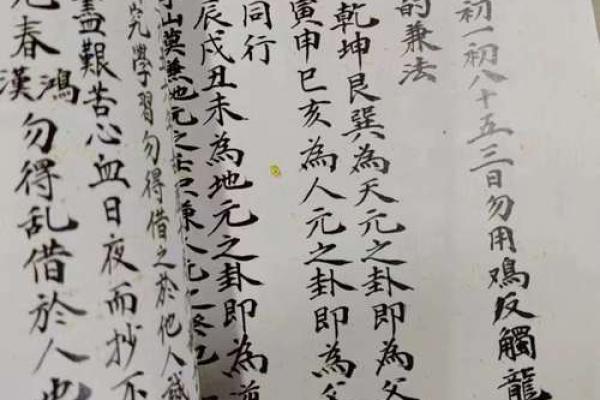 初一初八十五三日勿用鸡反觸龍
的兼法
乾坤艮巽為天元之卦即為父
寅申巳亥為人元之卦即為父
同行
辰戌丑未為地元之卦即為
山莫兼地元之
究學習勿得借之於他人
艱苦心血日夜而抄不
春鴻
漢勿得乱借於人也